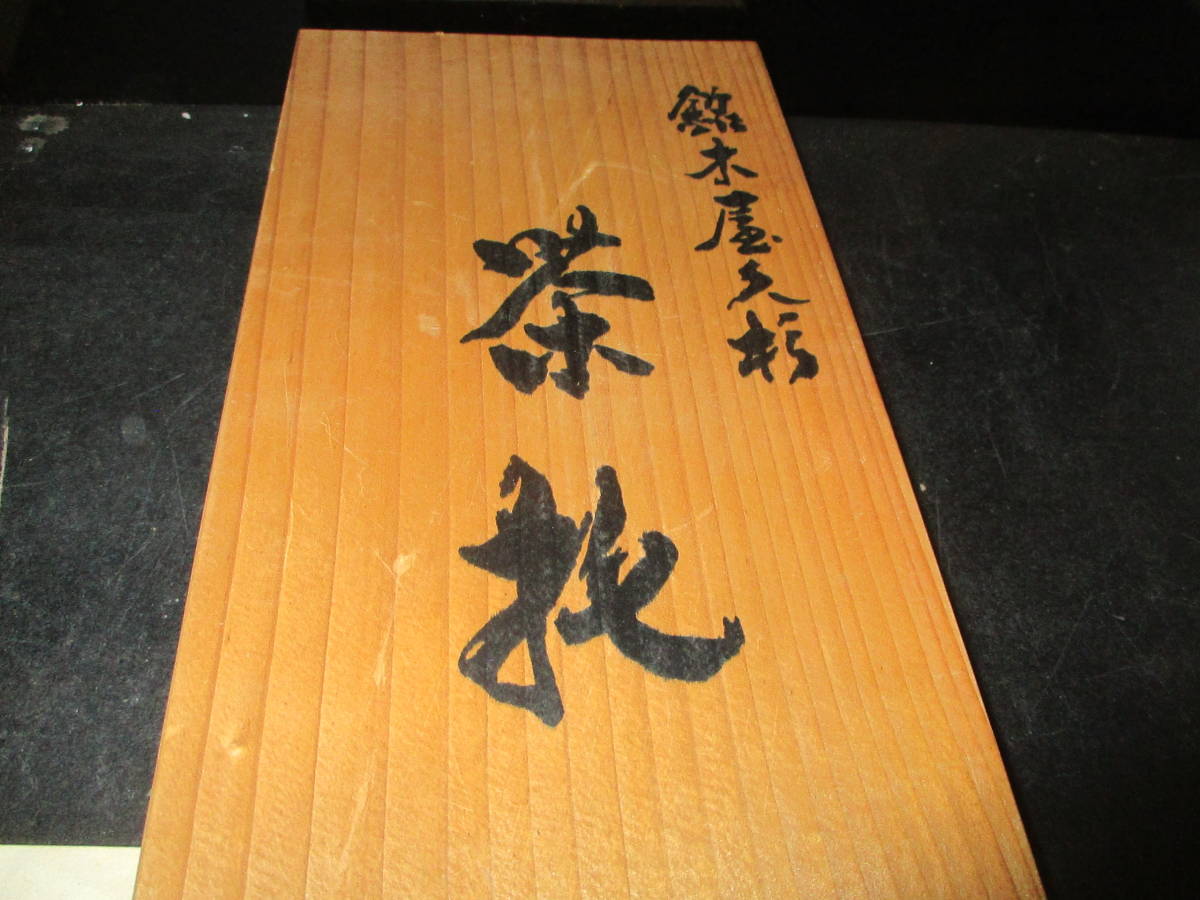 銘木屋久杉
茶托